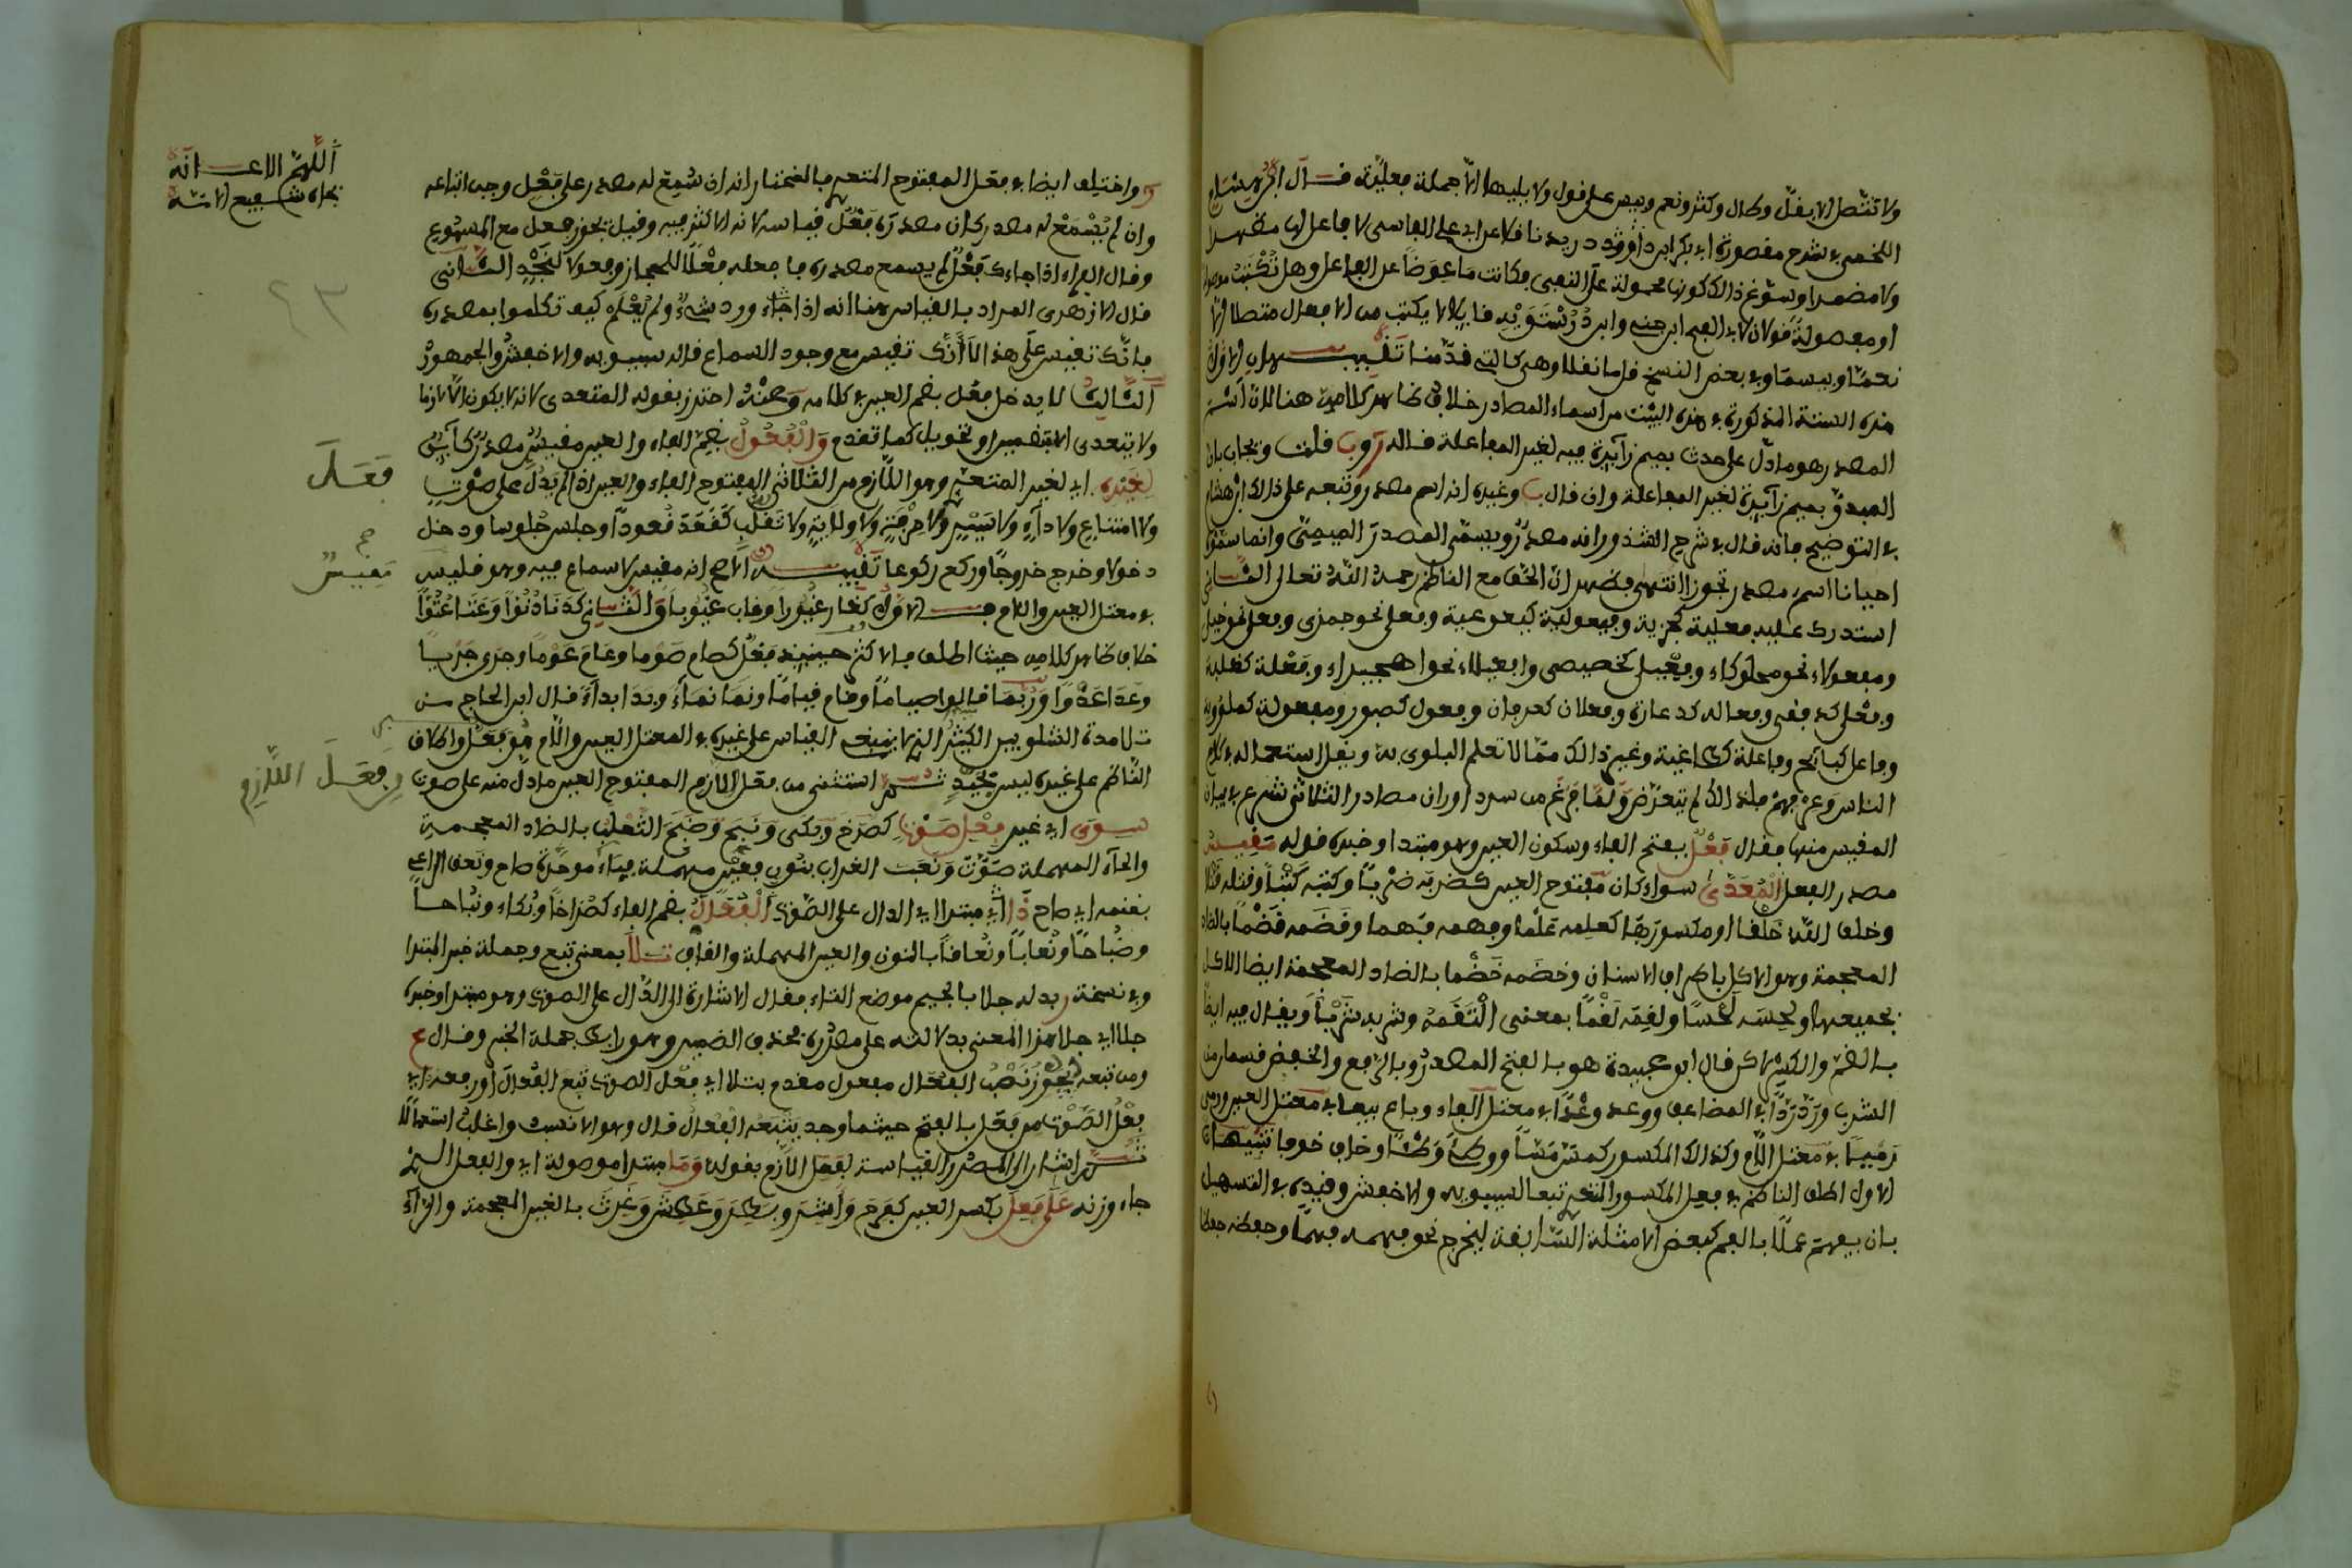 ولا تتصل إلا بقل وطال وكثر ونعم وبيس على قول ولا يليها إلا جملة فعلية قال ابن هشام
اللخمي في شرح مقصورة أبي بكر ابن دريد فلا عراب على الفاسي لا فاعل لها مظهرا
ولا مضمرا وسوغ ذالك كونها محمولة على النفي فكانت ما عوضا عن الفاعل وهل تكتب موصولة
او مفصولة قولان لابي الفتح ابن جني وابن درستويه قايلا لا يكتب من الافعال متصلا الا
نعما وبيسما وفي بعض النسخ قلما نقلا وهي كالتي قدمنا تنبيهان الاول
هذه الستة المذكورة في هذه البيت من اسماء المصادر خلاف ظاهر كلامه هنا لان اسم
المصدر هو ما دل على حدث بميم زايدة فيه لغير المفاعلة قاله و ب قلت ويجاب بان
المبدو بميم زايدة لغير المفاعلة وان قال ب وغيره انه اسم مصدر وتبعه على ذالك ابن هشام
في التوضيح فانه قال في شرح الشذور انه مصدر ويسمى المصدر الميمي وانما سموه
احيانا اسم مصدر تجوزا انتهى فظهر ان الحق مع الناظم رحمه الله تعالى الثاني
استدرك عليه فعلية كجزية وفيعولية وفعلى نحو جمزى
ومفعولاء نحو محلوكاء وفعيلى كخصيصى وافعيلاء نحو اهجيراء وفعلة كغلبة
وفعلى كذ وفعاله كدعارة وفعلان كحرمان وفعول كصبور ومفعولة
وفاعل وفاعلة كلاغية وغير ذالك مما لا تعلم البلوى به ويقل استعماله في كلام
الناس وعن فهم فلذالك لم يتعرض ولما فرغ من سرد اوزان مصادر الثلاثي شرع في بيان
المقيس منها فقال فعل بفتح الفاء وسكون العين وهو مبتدا وخبره قوله مقيس
مصدر الفعل المعدى سواء كان مفتوح العين كضربه ضربا وكتبه كتبا وقتله قتلا
وخلق الله خلقا او مكسورها كعلمه علما وفهمه فهما وقضمه قضما بالضاد
المعجمة وهو الاكل باطراف الاسنان وخضمه خضما بالضاد المعجمة ايضا الاكل
بجميعها ولحسه لحسا ولقمه لقما بمعنى التقمه وشربه شربا ويقال فيه ايضا
بالضم والكسر قال ابو عبيدة هو بالفتح المصدر وبالرفع والخفض اسمان من
الشرب ورد ردا في المضاعف ووعد وعدا في معتل الفاء وباع بيعا في معتل العين ورمى
رميا في معتل اللام وكذالك المكسور كمس مسا ووطئ وطئا وخاف خوفا تنبيهان
الاول اطلق الناظم في فعل المكسور المتعدي تبعا لسيبويه والاخفش وقيده في التسهيل
بان يفهم عملا بالفم كبعض الامثلة السابقة ليخرج نحو فهمه فهما وحفظه حفظا
اللهم الاعانة
بجاه شفيع الامة
واختلف ايضا في فعل المفتوح المتعدي فالمختار انه ان سمع له مصدر على فعل وجب اتباعه
وان لم يسمع له مصدر كان مصدره فعل قياسه لانه الاكثر فيه وقيل يجوز جعل مع المسموع
وقال الفراء اذا جاءك فعل لم يسمع مصدره فاجعله فعلا للحجاز وفعولا لنجد الثاني
قال الازهري المراد بالقياس هنا انه اذا جاء ورد شيء ولم يعلم كيف تكلموا بمصدره
فانك تقيس على هذا لا انك تقيس مع وجود السماع قاله سيبويه والاخفش والجمهور
الثالث لا يدخل فعل بضم العين في كلامه وعنه احترز بقوله المتعدي لانه لا يكون الا لازما
ولا يتعدى الا بتضمين او تحويل كما تقدم والفعول بضم الفاء والعين مقيس مصدر كاين
لغيره اي لغير المتعدي وهو اللازم من الثلاثي المفتوح الفاء والعين اذا لم يدل على صوت
ولا امتناع ولا داء ولا سير ولا حرفة ولا ولاية ولا تقلب كقعد قعودا وجلس جلوسا ودخل
دخولا وخرج خروجا وركع ركوعا تنبيه الاصح انه مقيس لا سماع فيه وهو قليل
في معتل العين واللام فـ الاول كغار غيورا وغاب غيوبا والثاني كدنا دنوا وعتا عتوا
خلاف ظاهر كلامه حيث اطلق فالاكثر حينيذ فعل كصام صوما وعام عوما وجرى جريا
وعدا عدوا وربما قالوا صياما وقام قياما ونما نماء وبدا بداء قال ابن الحاج من
تلامدة الشلوبين الكثير الذي ينبغي القياس على غيره في المعتل العين واللام هو فعل واطلاق
الناظم على غيره ليس بجيد ثم استثنى من فعل اللازم المفتوح العين ما دل منه على صوت
سوى اي غير فعل صوت كصرخ وبكى ونبح وضبح الثعلب بالضاد المعجمة
والحاء المهملة صوت ونعب الغراب بنون فعين مهملة فباء موحدة صاح ونعق الراعي
بغنمه اي صاح ذا اي مبتدا اي الدال على الصوت الفعال بضم الفاء كصراخا وبكاء ونباحا
وضباحا ونعابا ونعاقا بالنون والعين المهملة والقاف تلا بمعنى تبع وجملة خبر المبتدا
وفي نسخة بدله جلا بالجيم موضع التاء فقال الاشارة الى الدال على الصوت وهو مبتدا وخبره
جلا اي جلا هذا المعنى بدلالته على مصدره بحذف الضمير وهو رابط جملة الخبر وقال ع
ومن تبعه يجوز نصب الفعال مفعول مقدم بتلا اي فعل الصوت تبع الفعال او رفعه اي
فعل الصوت من فعل بالفتح حيثما وجد يتبعه الفعال قال وهو الانسب واغلب استعمالا
ثم اشار الى المصدر القياسي لفعل اللازم بقوله وما مبتدا موصولة اي والفعل الذي
جاء وزنه على فعل بكسر العين كفرح واشر وبطر وعطش وغرث بالغين المعجمة والراء
فعل
مقيس
وفعل اللازم